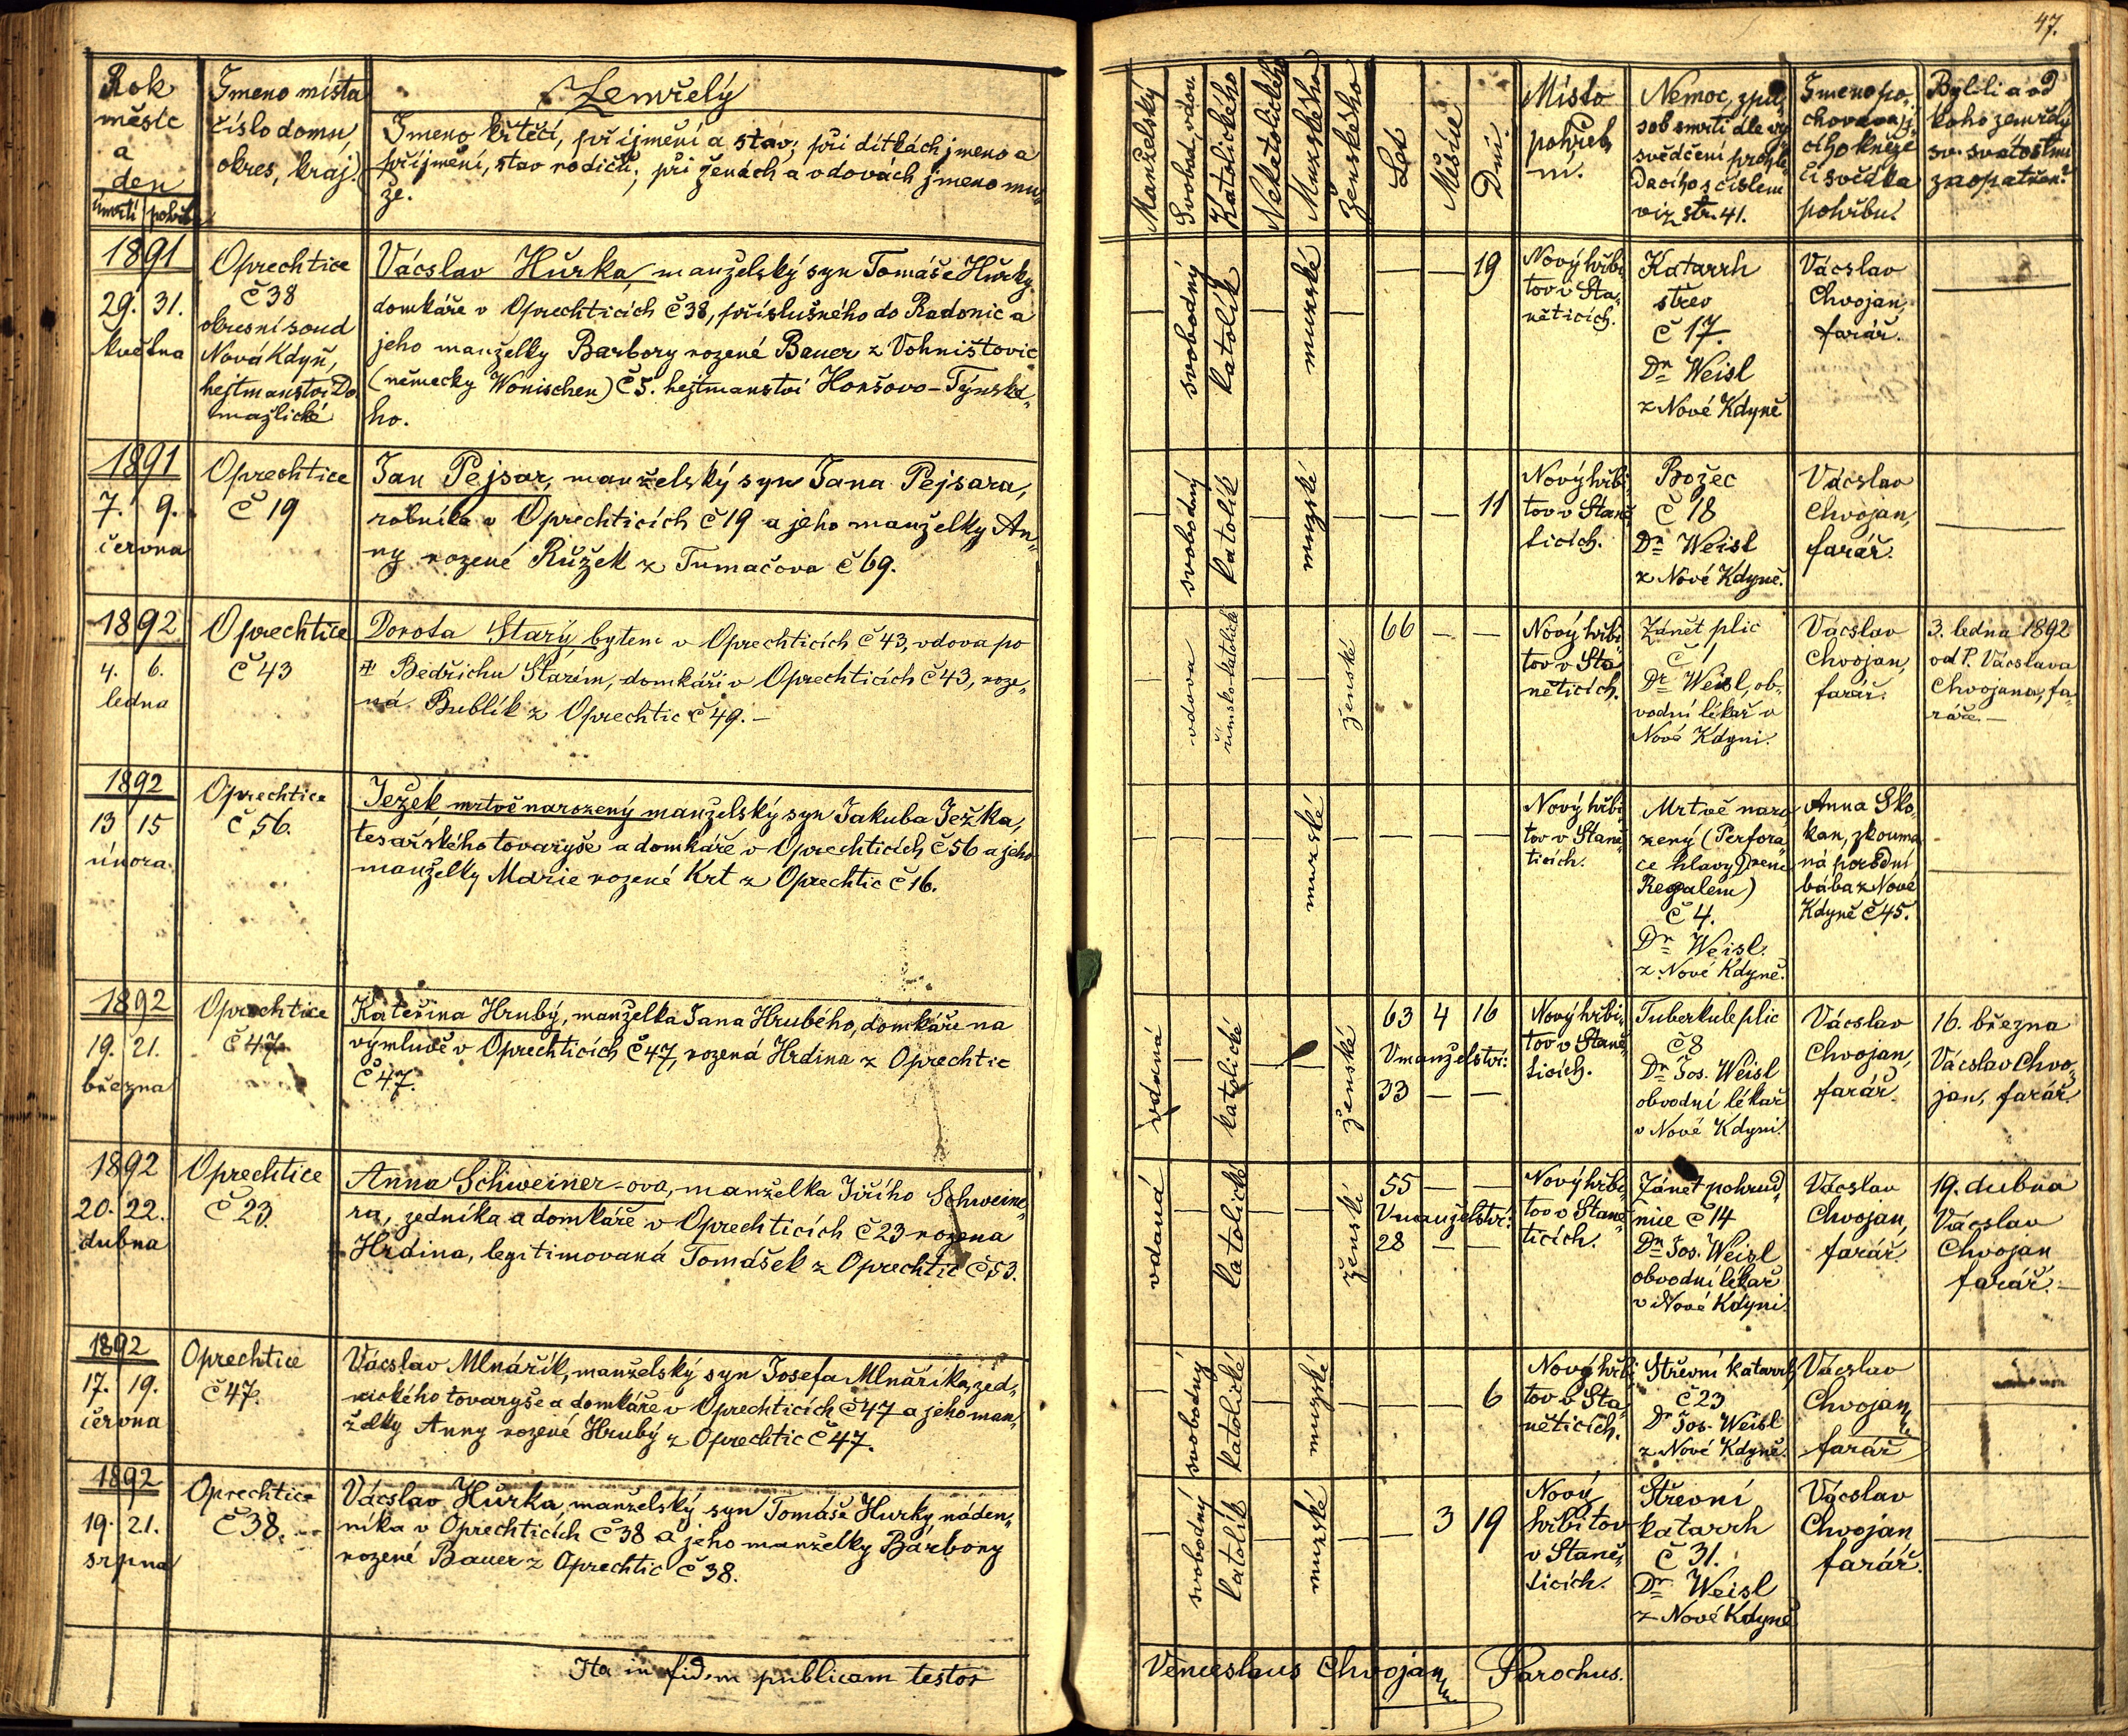 47.
Rok
měsíc
a
den
úmrtí pohřbu
Jmeno místa
číslo domu,
okres, kraj.
Zemřelý
Jmeno křtěcí, příjmění a stav; při dítkách jmeno a
příjmění, stav rodičů; při ženách a vdovách jmeno mu„
že.
Manželský
Svobod, vdov.
Katolického
Nekatolického
Mužského
Ženského
Let
Měsíců
Dnů.
Místo
pohřeb„
ní.
Nemoc, způ„
sob smrti dle vy„
svědčení prohlí„
dacího s číslem
viz str. 41.
Jmeno po„
chovávají„
cího kněze
či svědka
pohřbu.
Byl-li a od
koho zemřelý
sv. svátostmi
zaopatřen?
1891
29. 31.
května
Oprechtice
č 38
okresní soud
Nová Kdyň,
hejtmanství Do„
mažlické
Václav Hůrka, manželský syn Tomáše Hůrky
domkáře v Oprechticích č 38, příslušného do Radonic a
jeho manželky Barbory rozené Bauer z Vohništovic
(německy Wonischen) č 5. hejtmanství Horšovo-Týnské„
ho.
— svobodný katolík — mužské — — — 19
Nový hřbi„
tov v Sta„
něticích.
Katarrh
střev
č 17.
Dr Weisl
z Nové Kdyně
Vácslav
Chvojan,
farář.
—
1891
7. 9.
června
Oprechtice
č 19
Jan Pejsar, manželský syn Jana Pejsara,
rolníka v Oprechticích č 19 a jeho manželky An„
ny rozené Růžek z Tumačova č 69.
— svobodný katolík — mužské — — — 11
Nový hřbi„
tov v Staně„
ticích.
Božec
č 18
Dr Weisl
z Nové Kdyně.
Vácslav
Chvojan,
farář.
—
1892
4. 6.
ledna
Oprechtice
č 43
Dorota Starý, bytem v Oprechticích č 43, vdova po
Bedřichu Starím, domkáři v Oprechticích č 43, roze„
ná Bublík z Oprechtic č 49. —
— vdova římsko-katolické — — ženské 66 — —
Nový hřbi„
tov v Sta„
něticích.
Zánět plic
č 1
Dr Weisl, ob„
vodní lékař v
Nové Kdyni.
Vácslav
Chvojan,
farář.
3. ledna 1892
od P. Vácslava
Chvojana, fa„
ráře. —
1892
13 15
února
Oprechtice
č 56.
Ježek mrtvě narozený manželský syn Jakuba Ježka,
tesařského tovaryše a domkáře v Oprechticích č 56 a jeho
manželky Marie rozené Krt z Oprechtic č 16.
— — — — mužské — — — —
Nový hřbi„
tov v Staně„
ticích.
Mrtvě naro„
zený (Perfora„
ce hlavy Drem
Regalem)
č 4.
Dr Weisl.
z Nové Kdyně.
Anna Sko„
kan, zkouma„
ná porodní
bába z Nové
Kdyně č 45.
—
1892
19. 21.
března
Oprechtice
č 47.
Kateřina Hrubý, manželka Jana Hrubého, domkáře na
výmluvě v Oprechticích č 47, rozená Hrdina z Oprechtic
č 47.
vdaná — katolické — — ženské 63 4 16
V manželství:
33 — —
Nový hřbi„
tov v Staně„
ticích.
Tuberkule plic
č 8
Dr Jos. Weisl
obvodní lékař
v Nové Kdyni.
Vácslav
Chvojan,
farář.
16. března
Vácslav Chvo„
jan, farář.
1892
20. 22.
dubna
Oprechtice
č 23.
Anna Schweiner-ova, manželka Jiřího Schweine„
ra, zedníka a domkáře v Oprechticích č 23 rozena
Hrdina, legitimovaná Tomášek z Oprechtic č 53.
vdaná — katolické — — ženské 55 — —
V manželství:
28 — —
Nový hřbi„
tov v Staně„
ticích.
Zánět pohrud„
nice č 14
Dr Jos. Weisl
obvodní lékař
v Nové Kdyni.
Vácslav
Chvojan,
farář.
19. dubna
Vácslav
Chvojan
farář. —
1892
17. 19.
června
Oprechtice
č 47.
Vácslav Mlnářík, manželský syn Josefa Mlnáříka, zed„
nického tovaryše a domkáře v Oprechticích č 47 a jeho man„
želky Anny rozené Hrubý z Oprechtic č 47.
— svobodný katolické — mužské — — — 6
Nový hřbi„
tov v Sta„
něticích.
Střevní katarrh
č 23
Dr Jos. Weisl
z Nové Kdyně.
Vácslav
Chvojan,
farář
—
1892
19. 21.
srpna
Oprechtice
č 38.
Vácslav Hůrka, manželský syn Tomáše Hurky, náden„
níka v Oprechticích č 38 a jeho manželky Bárbory
rozené Bauer z Oprechtic č 38.
— svobodný katolík — mužské — — 3 19
Nový
hřbitov
v Staně„
ticích.
Střevní
katarrh
č 31.
Dr Weisl
z Nové Kdyně
Vácslav
Chvojan
farář.
—
Ita in fidem publicam testor
Venceslaus Chvojan Parochus.